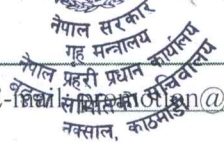 नेपाल सरकार
गृह मन्त्रालय
नेपाल प्रहरी प्रधान कार्यालय
सचिवालय
नक्साल, काठमाडौं